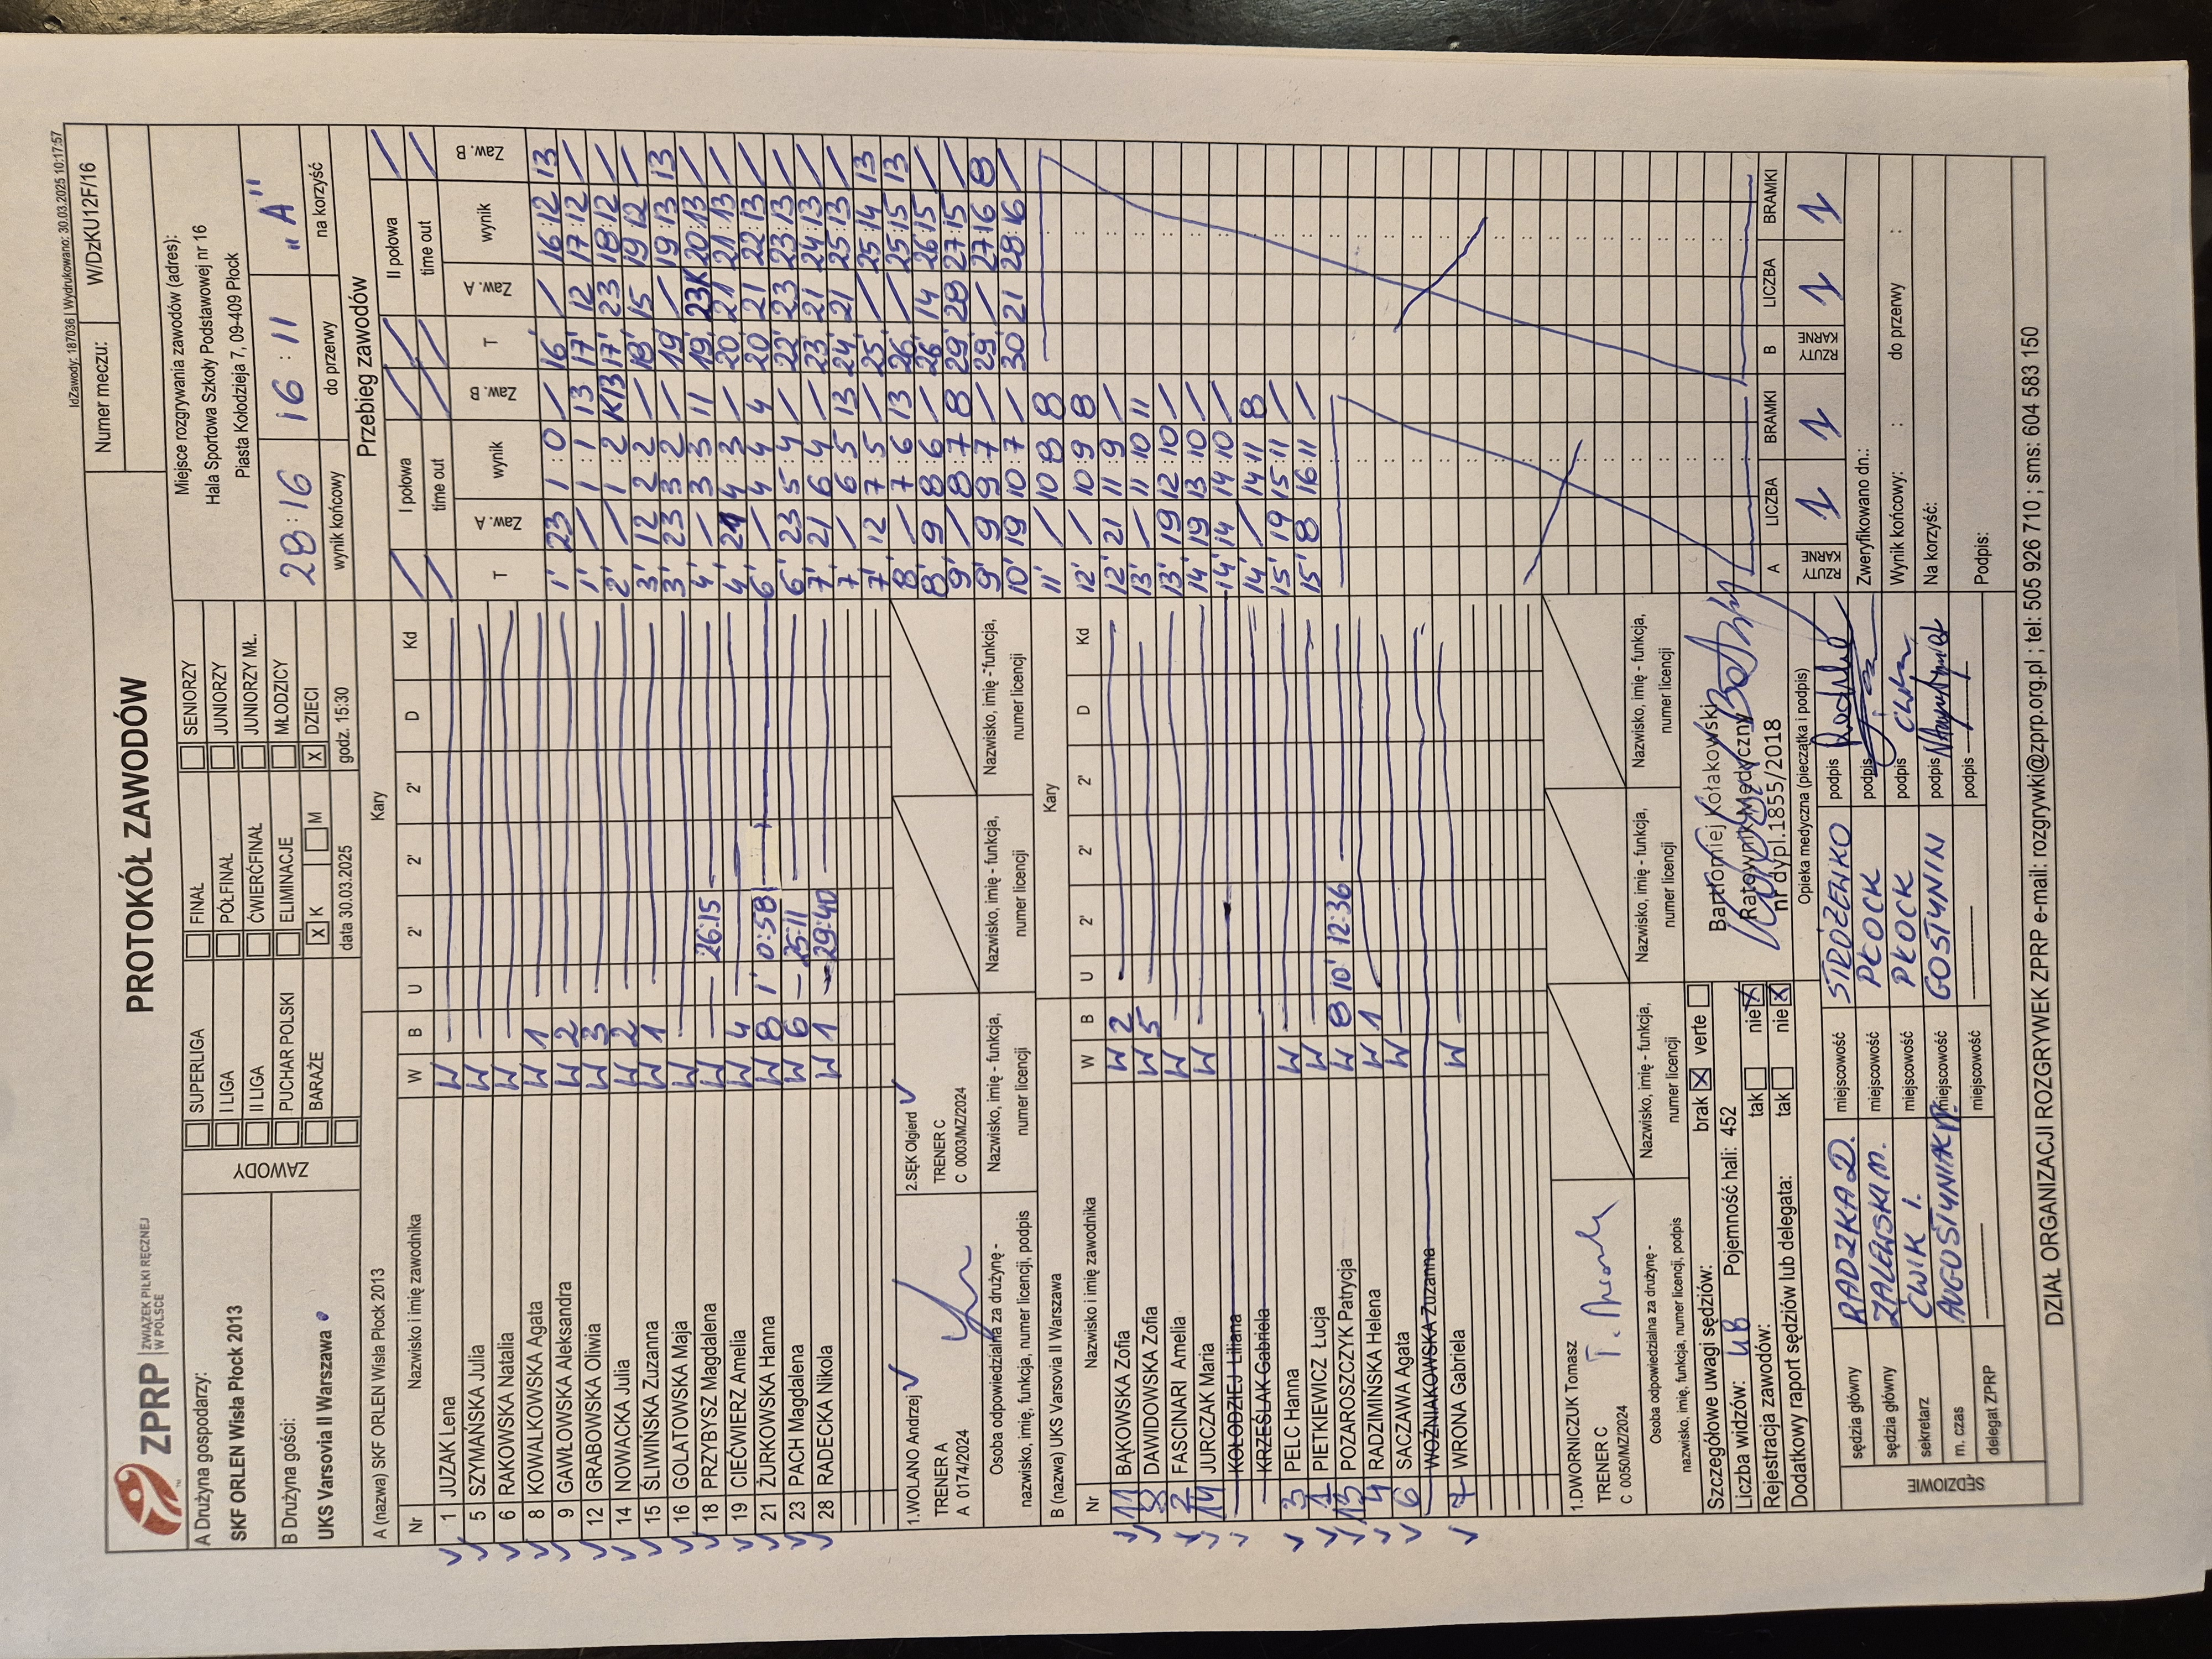 IdZawody: 187036 | Wydrukowano: 30.03.2025 10:17:57
ZPRP ZWIĄZEK PIŁKI RĘCZNEJ W POLSCE
PROTOKÓŁ ZAWODÓW
Numer meczu: W/DzKU12F/16
A Drużyna gospodarzy:
SKF ORLEN Wisła Płock 2013
B Drużyna gości:
UKS Varsovia II Warszawa
ZAWODY
SUPERLIGA FINAŁ SENIORZY
I LIGA PÓŁFINAŁ JUNIORZY
II LIGA ĆWIERĆFINAŁ JUNIORZY MŁ.
PUCHAR POLSKI ELIMINACJE MŁODZICY
BARAŻE X K M X DZIECI
data 30.03.2025 godz. 15:30
Miejsce rozgrywania zawodów (adres):
Hala Sportowa Szkoły Podstawowej nr 16
Piasta Kołodzieja 7, 09-409 Płock
28:16 16:11 "A"
wynik końcowy do przerwy na korzyść
A (nazwa) SKF ORLEN Wisła Płock 2013 Kary
Nr Nazwisko i imię zawodnika W B U 2' 2' 2' D Kd
1 JUZAK Lena W
5 SZYMAŃSKA Julia W
6 RAKOWSKA Natalia W
8 KOWALKOWSKA Agata W 1
9 GAWŁOWSKA Aleksandra W 2
12 GRABOWSKA Oliwia W 3
14 NOWACKA Julia W 2
15 ŚLIWIŃSKA Zuzanna W 1
16 GOLATOWSKA Maja W
18 PRZYBYSZ Magdalena W 26:15
19 CIEĆWIERZ Amelia W 4
21 ŻURKOWSKA Hanna W 8 1' 0:58
23 PACH Magdalena W 6 25:11
28 RADECKA Nikola W 1 29:40
1.WOLANO Andrzej 2.SĘK Olgierd
TRENER A TRENER C
A 0174/2024 C 0003/MZ/2024
Osoba odpowiedzialna za drużynę - nazwisko, imię, funkcja, numer licencji, podpis
Nazwisko, imię - funkcja, numer licencji
Nazwisko, imię - funkcja, numer licencji
Nazwisko, imię - funkcja, numer licencji
B (nazwa) UKS Varsovia II Warszawa Kary
Nr Nazwisko i imię zawodnika W B U 2' 2' 2' D Kd
11 BĄKOWSKA Zofia W 2
8 DAWIDOWSKA Zofia W 5
2 FASCINARI Amelia W
14 JURCZAK Maria W
KOŁODZIEJ Liliana
KRZEŚLAK Gabriela
3 PELC Hanna W
1 PIETKIEWICZ Łucja W
13 POZAROSZCZYK Patrycja W 8 10' 12:36
4 RADZIMIŃSKA Helena W 1
6 SACZAWA Agata W
WOŹNIAKOWSKA Zuzanna
7 WRONA Gabriela W
1.DWORNICZUK Tomasz
TRENER C
C 0050/MZ/2024
Osoba odpowiedzialna za drużynę - nazwisko, imię, funkcja, numer licencji, podpis
Nazwisko, imię - funkcja, numer licencji
Nazwisko, imię - funkcja, numer licencji
Nazwisko, imię - funkcja, numer licencji
Przebieg zawodów
I połowa II połowa
time out time out
T Zaw. A wynik Zaw. B T Zaw. A wynik Zaw. B
1' 23 1:0 / 16' / 16:12 13
1' / 1:1 13 17' 12 17:12 /
2' / 1:2 K13 17' 23 18:12 /
3' 12 2:2 / 18' 15 19:12 /
3' 23 3:2 / 19' / 19:13 13
4' / 3:3 11 19' 23K 20:13 /
4' 21 4:3 / 20' 21 21:13 /
6' / 4:4 4 20' 21 22:13 /
6' 23 5:4 / 22' 23 23:13 /
7' 21 6:4 / 23' 21 24:13 /
7' / 6:5 13 24' 21 25:13 /
7' 12 7:5 / 25' / 25:14 13
8' / 7:6 13 26' / 25:15 13
8' 9 8:6 / 26' 14 26:15 /
9' / 8:7 8 29' 28 27:15 /
9' 9 9:7 / 29' / 27:16 8
10' 19 10:7 / 30' 21 28:16 /
11' / 10:8 8
12' / 10:9 8
12' 21 11:9 /
13' / 11:10 11
13' 19 12:10 /
14' 19 13:10 /
14' 14 14:10 /
14' / 14:11 8
15' 19 15:11 /
15' 8 16:11 /
A LICZBA BRAMKI B LICZBA BRAMKI
RZUTY KARNE 1 1 RZUTY KARNE 1 1
Szczegółowe uwagi sędziów: brak X verte
Liczba widzów: UB Pojemność hali: 452
Rejestracja zawodów: tak nie X
Dodatkowy raport sędziów lub delegata: tak nie X
Bartłomiej Kołakowski
Ratownik Medyczny
nr dypl.1855/2018
Opieka medyczna (pieczątka i podpis)
SĘDZIOWIE
sędzia główny RADZKA D. miejscowość STRÓŻEWKO podpis
sędzia główny ZALEWSKI M. miejscowość PŁOCK podpis
sekretarz ĆWIK I. miejscowość PŁOCK podpis Ćwik
m. czas AUGUSTYNIAK P. miejscowość GOSTYNIN podpis
delegat ZPRP miejscowość podpis
Zweryfikowano dn.:
Wynik końcowy: : do przerwy :
Na korzyść:
Podpis:
DZIAŁ ORGANIZACJI ROZGRYWEK ZPRP e-mail: rozgrywki@zprp.org.pl ; tel: 505 926 710 ; sms: 604 583 150